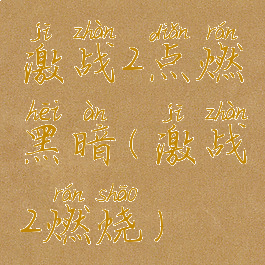 jī zhàn diǎn rán
激战2点燃
hēi àn jī zhàn
黑暗(激战
rán shāo
2燃烧)